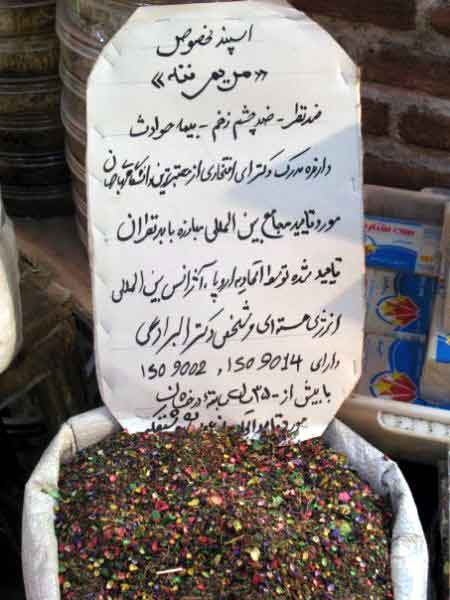 اسپند مخصوص
«مریم ننه»
ضد نظر - ضد چشم زخم - بیمه حوادث
دارنده مدرک دکترای افتخاری از معتبرترین دانشگاههای جهان
مورد تایید مجامع بین المللی مبارزه با بد نظران
تایید شده توسط اتحادیه اروپا، آژانس بین المللی
انرژی هسته ای و شخص دکتر البرادعی
دارای ISO 9002, ISO 9014
با بیش از ۳۵ سال سابقه درخشان
مورد تایید